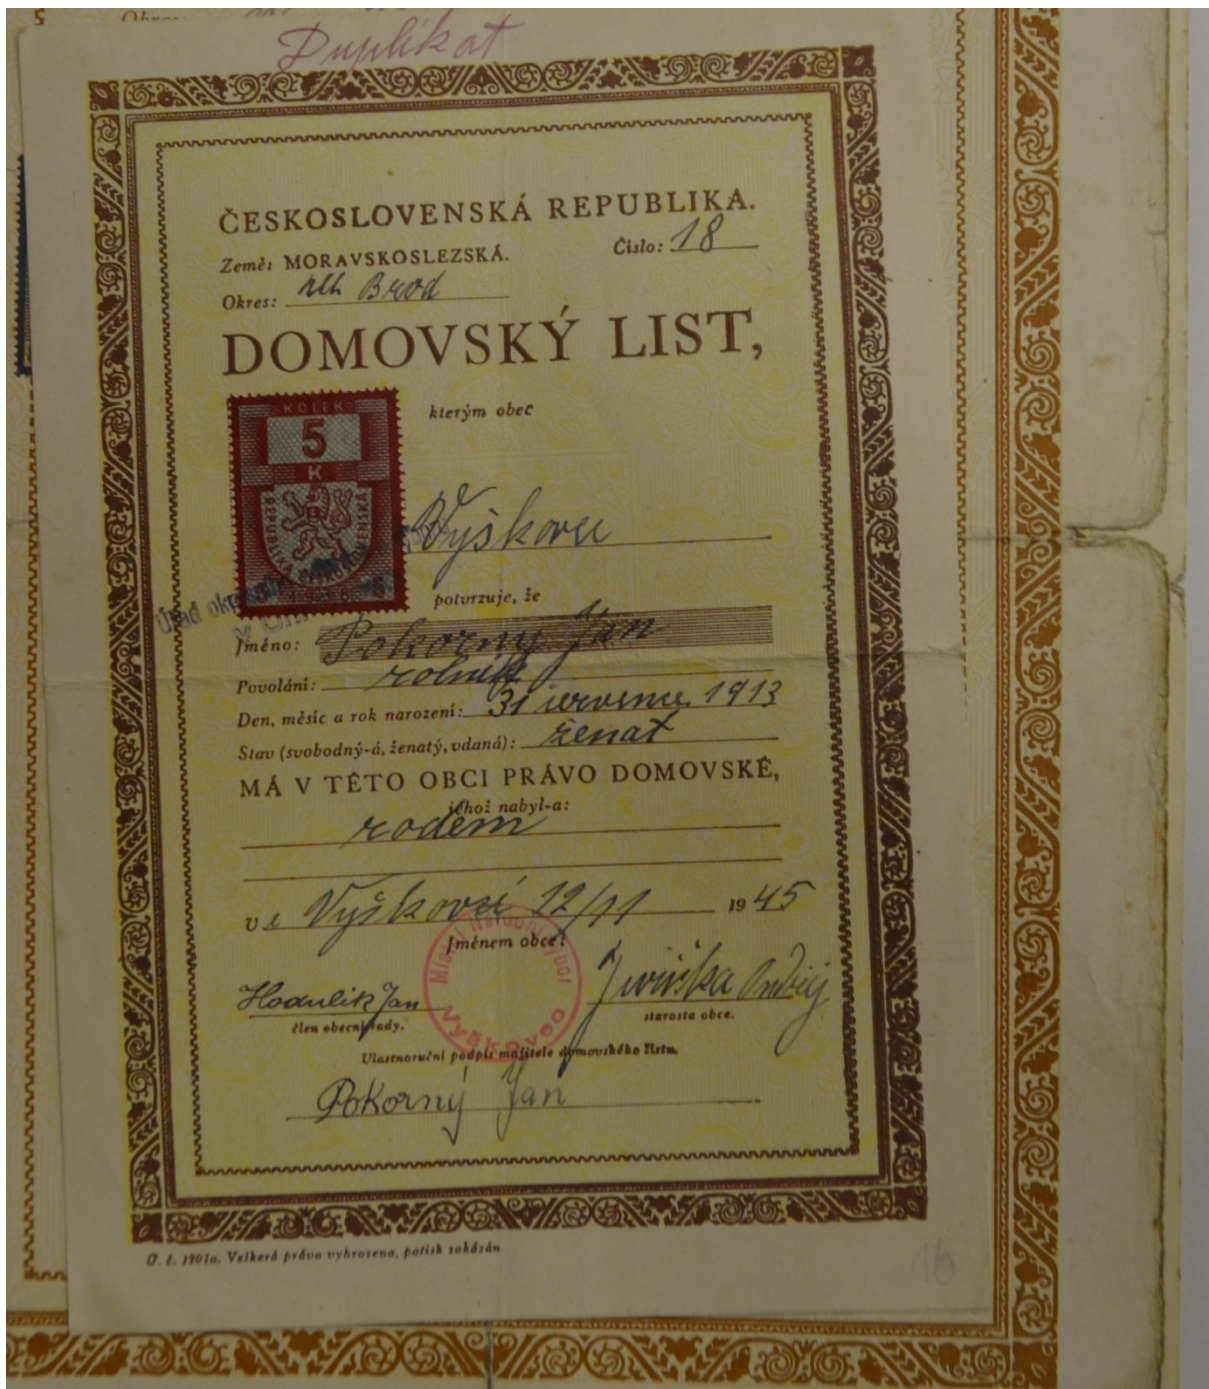 Duplikat
ČESKOSLOVENSKÁ REPUBLIKA.
Země: MORAVSKOSLEZSKÁ. Číslo: 18
Okres: Uh. Brod
DOMOVSKÝ LIST,
KOLEK
5
K
REPUBLIKA ČESKOSLOVENSKÁ
kterým obec
Vyškovec
potvrzuje, že
Úřad
Jméno: Pokorný Jan
Povolání: rolník
Den, měsíc a rok narození: 31 července 1913
Stav (svobodný-á, ženatý, vdaná): ženat
MÁ V TÉTO OBCI PRÁVO DOMOVSKÉ,
jehož nabyl-a:
rodem
ve Vyškovci 12/11 1945
Jménem obce:
Místní Národní výbor
Vyškovec
Hodulík Jan Ondrej
člen obecní rady. starosta obce.
Vlastnoruční podpis majitele domovského listu.
Pokorný Jan
Ú. t. 1201a. Veškerá práva vyhrazena, patisk zakázán
16